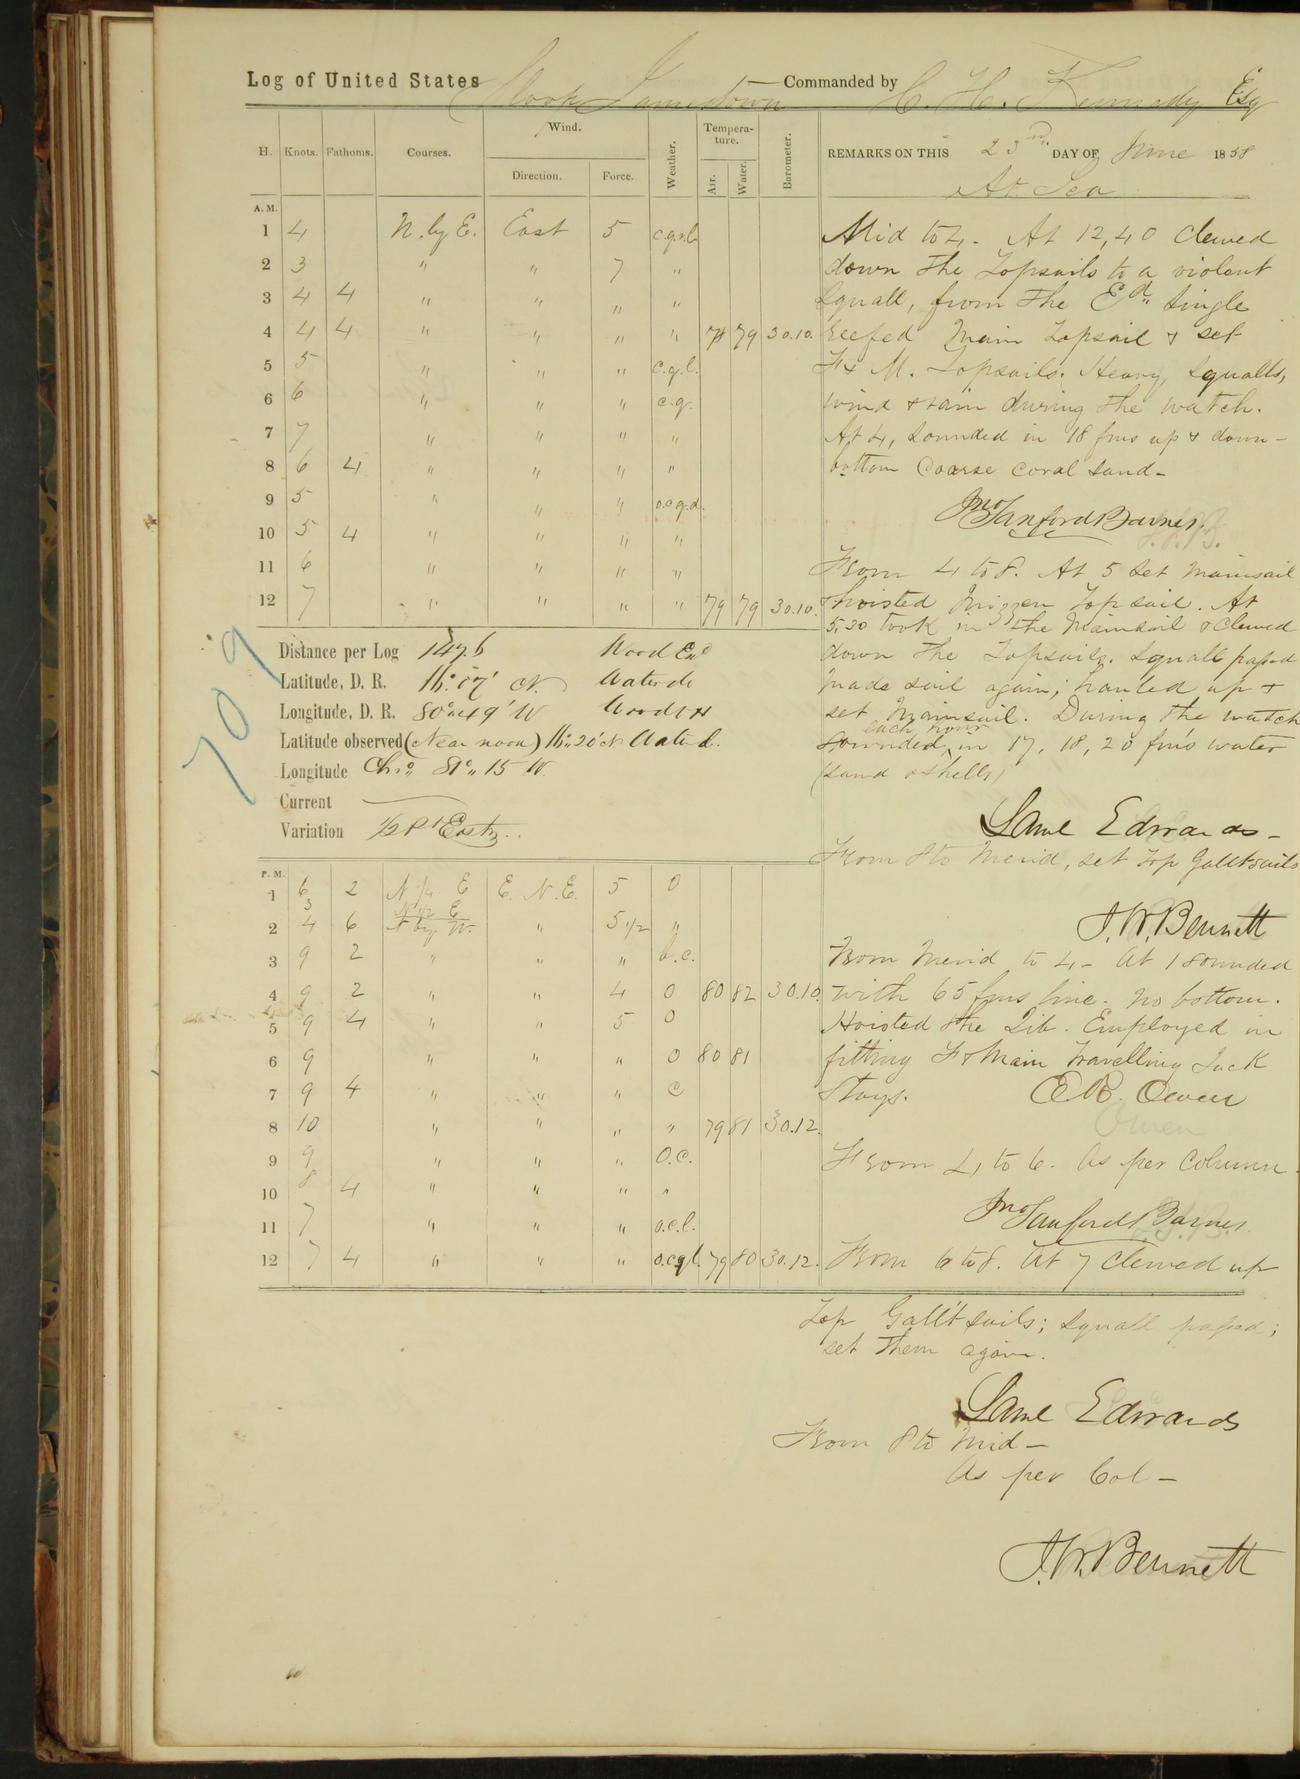 Log of United States Sloop Jamestown Commanded by C. H. Kennedy Esq
H. Knots. Fathoms. Courses. Wind. Direction. Force. Weather. Tempera-ture. Air. Water. Barometer.
REMARKS ON THIS 23rd DAY OF June 1858
At Sea
A.M.
1 4 N. by E. East 5 c.q.r.l.
2 3 " " 7 "
3 4 4 " " " "
4 4 4 " " " " 78 79 30.10.
5 5 " " " c.q.l.
6 6 " " " c.q.
7 7 " " " "
8 6 4 " " " "
9 5 " " " o.c.q.d.
10 5 4 " " " "
11 6 " " " "
12 7 " " " " 79 79 30.10.
Mid to 4. At 12,40 clewed
down the Topsails to a violent
Squall, from the Ed,, Single
reefed Main Topsail & set
F & M. Topsails. Heavy, Squalls,
wind & rain during the watch.
At 4, sounded in 18 fms up & down -
bottom Coarse coral sand -
Jno Sanford Barnes.
From 4 to 8. At 5 set mainsail
& hoisted Mizzen Top sail. At
5,30 took in the Mainsail & clewed
down the Topsails. Squall passed
made sail again; hauled up &
set Mainsail. During the watch
sounded, each hour in 17, 18, 20 fms water
(sand & shells)
Saml Edwards -
From 8 to Merid, set Top Gallt sails
J. W. Bennett
709
Distance per Log 147.6 Wood End
Latitude, D. R. 16°.17' N. Water do
Longitude, D. R. 80°.49' W
Latitude observed (Near noon) 16°.. 20' N
Longitude Chro 81°.. 15 W.
Current
Variation 1/2 Pt East,,
P.M.
1 6 2 E. N. E. 5 o
2 4 6 N by W. " 5 1/2 "
3 9 2 " " " b.c.
4 9 2 " " 4 o 80 82 30.10.
5 9 4 " " 5 o
6 9 " " " o 80 81
7 9 4 " " " c
8 10 " " " " 79 81 30.12.
9 9 " " " o.c.
10 8 4 " " " "
11 7 " " " o.c.l.
12 7 4 " " " o.c.q.l. 79 80 30.12.
From Merid to 4 - At 1 sounded
with 65 fms line - no bottom.
Hoisted the Jib. Employed in
fitting F & Main Travelling Jack
Stays. E R. Owen
From 4 to 6. As per Column.
Jno Sanford Barnes
From 6 to 8. At 7 clewed up
Top Gall't sails; squall passed;
set them again.
Saml Edwards
From 8 to Mid -
As per Col -
J. W. Bennett